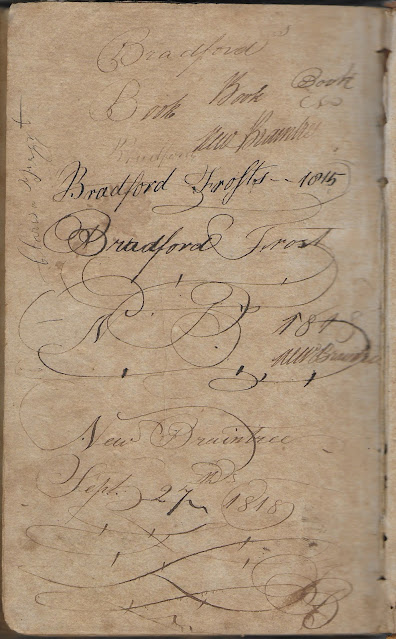 Bradford's
Book Book Book
New Braintree
Bradford
Bradford Frosts 1815
Bradford Frost
N B 1818
New Braintree
New Braintree
Sept. 27th 1818